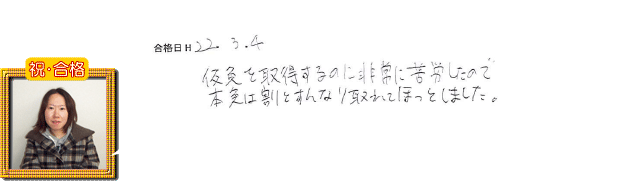 合格日 H 22.3.4
祝・合格
仮免を取得するのに非常に苦労したので
本免は割とすんなり取れてほっとしました。